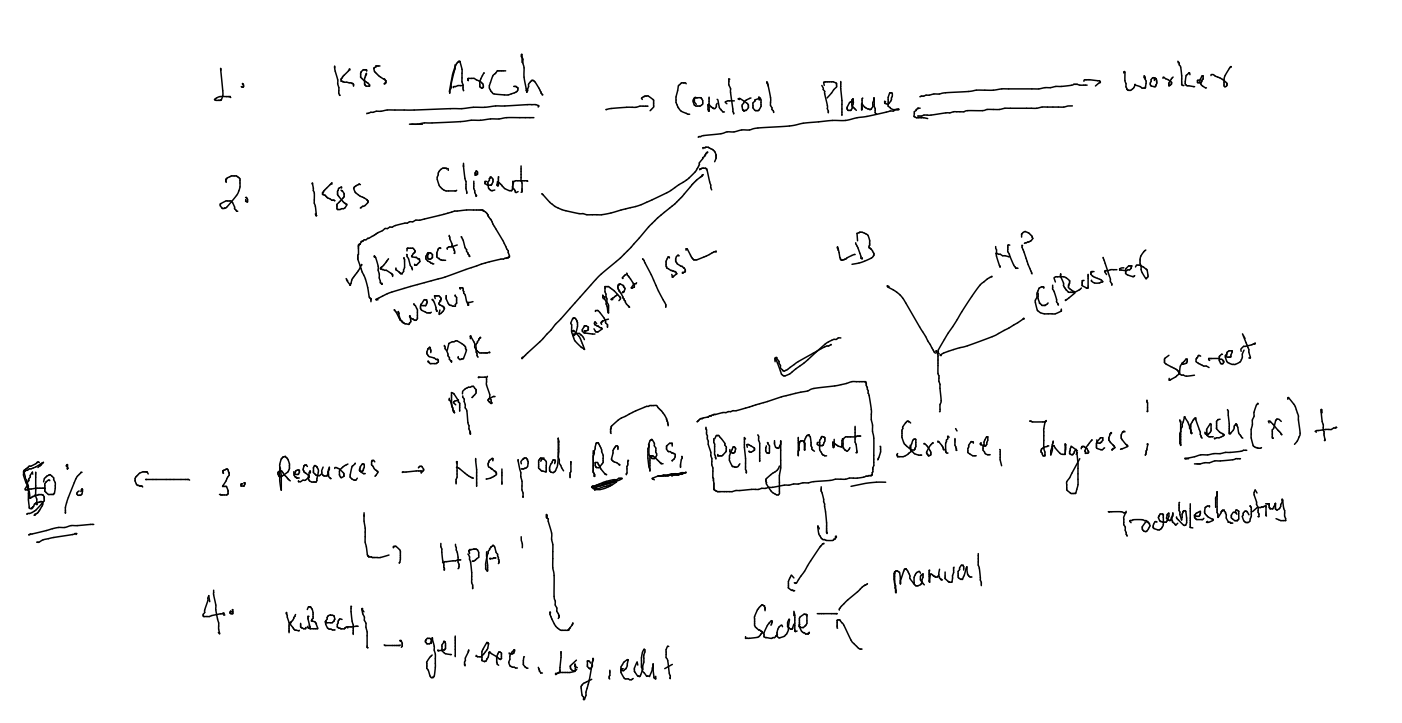 1. K8S Arch → Control Plane Worker
2. K8S Client
KuBectl
WEBUI
SDK
API
Rest API / SSL
LB
NP
Secret
3. Resources → NS, pod, RC, RS, Deployment, Service, Ingress, Mesh(x) +
Troubleshooting
HPA
Scale
manual
4. KuBectl → get, exec, Log, edit